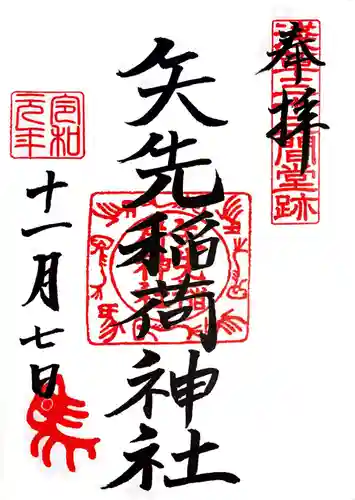 奉拝
三十三間堂跡
矢先稲荷神社
令和
元年
十一月七日